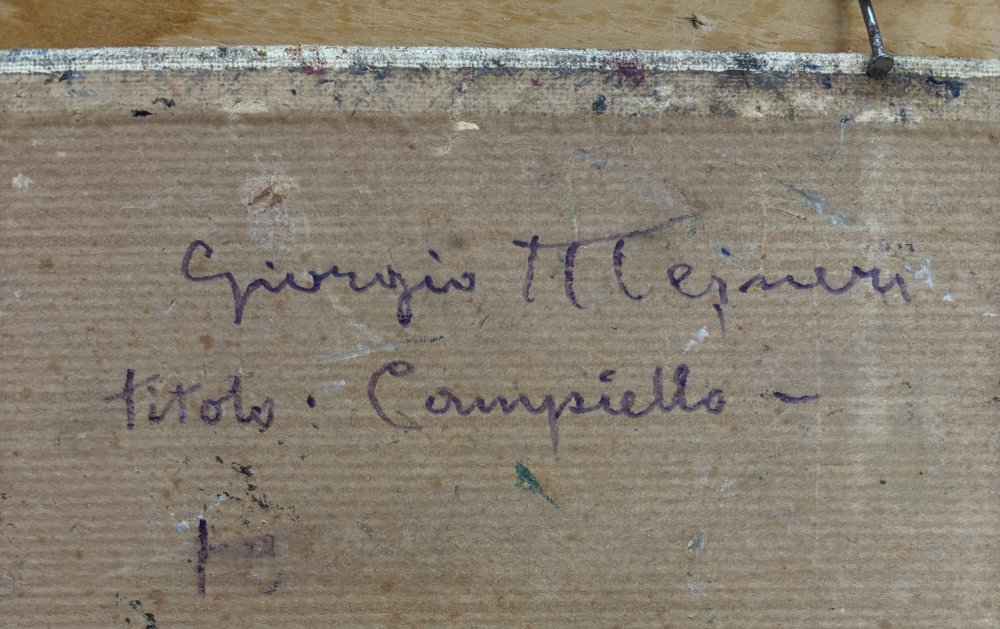 Giorgio Mejneri
titolo: Campiello -